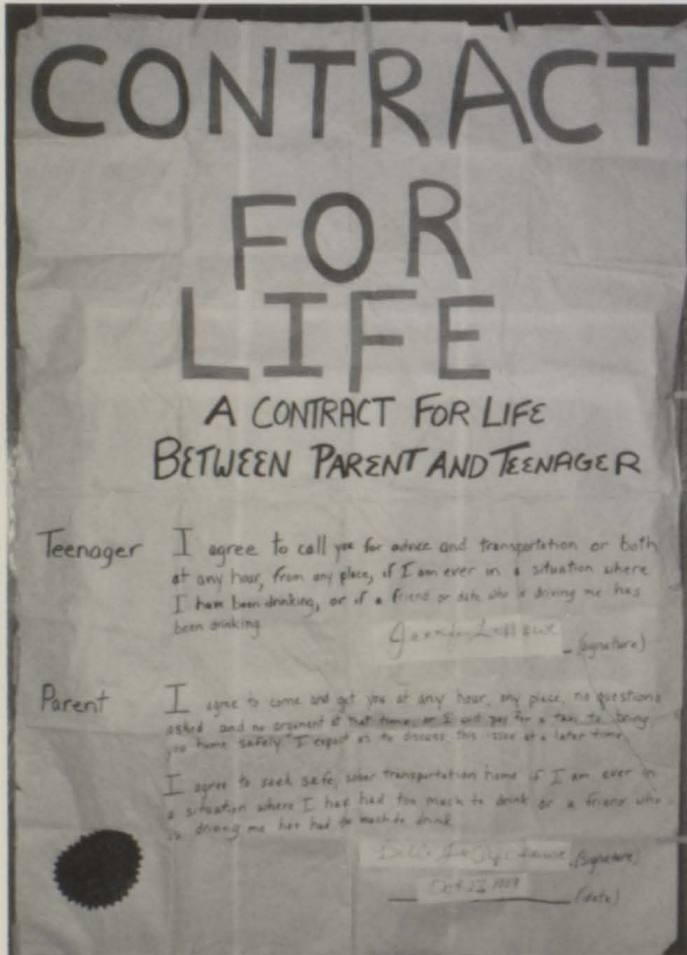 CONTRACT
FOR
LIFE
A CONTRACT FOR LIFE
BETWEEN PARENT AND TEENAGER
Teenager I agree to call you for advice and transportation or both
at any hour, from any place, if I am ever in a situation where
I have been drinking, or if a friend or date who is driving me has
been drinking
(signature)
Parent I agree to come and get you at any hour, any place, no questions
asked and no argument at that time, or I will pay for a taxi to bring
you home safely I expect us to discuss this issue at a later time
I agree to seek safe, sober transportation home if I am ever in
a situation where I has had too much to drink or a friend who
is driving me has had to much to drink
(signature)
Oct (date)